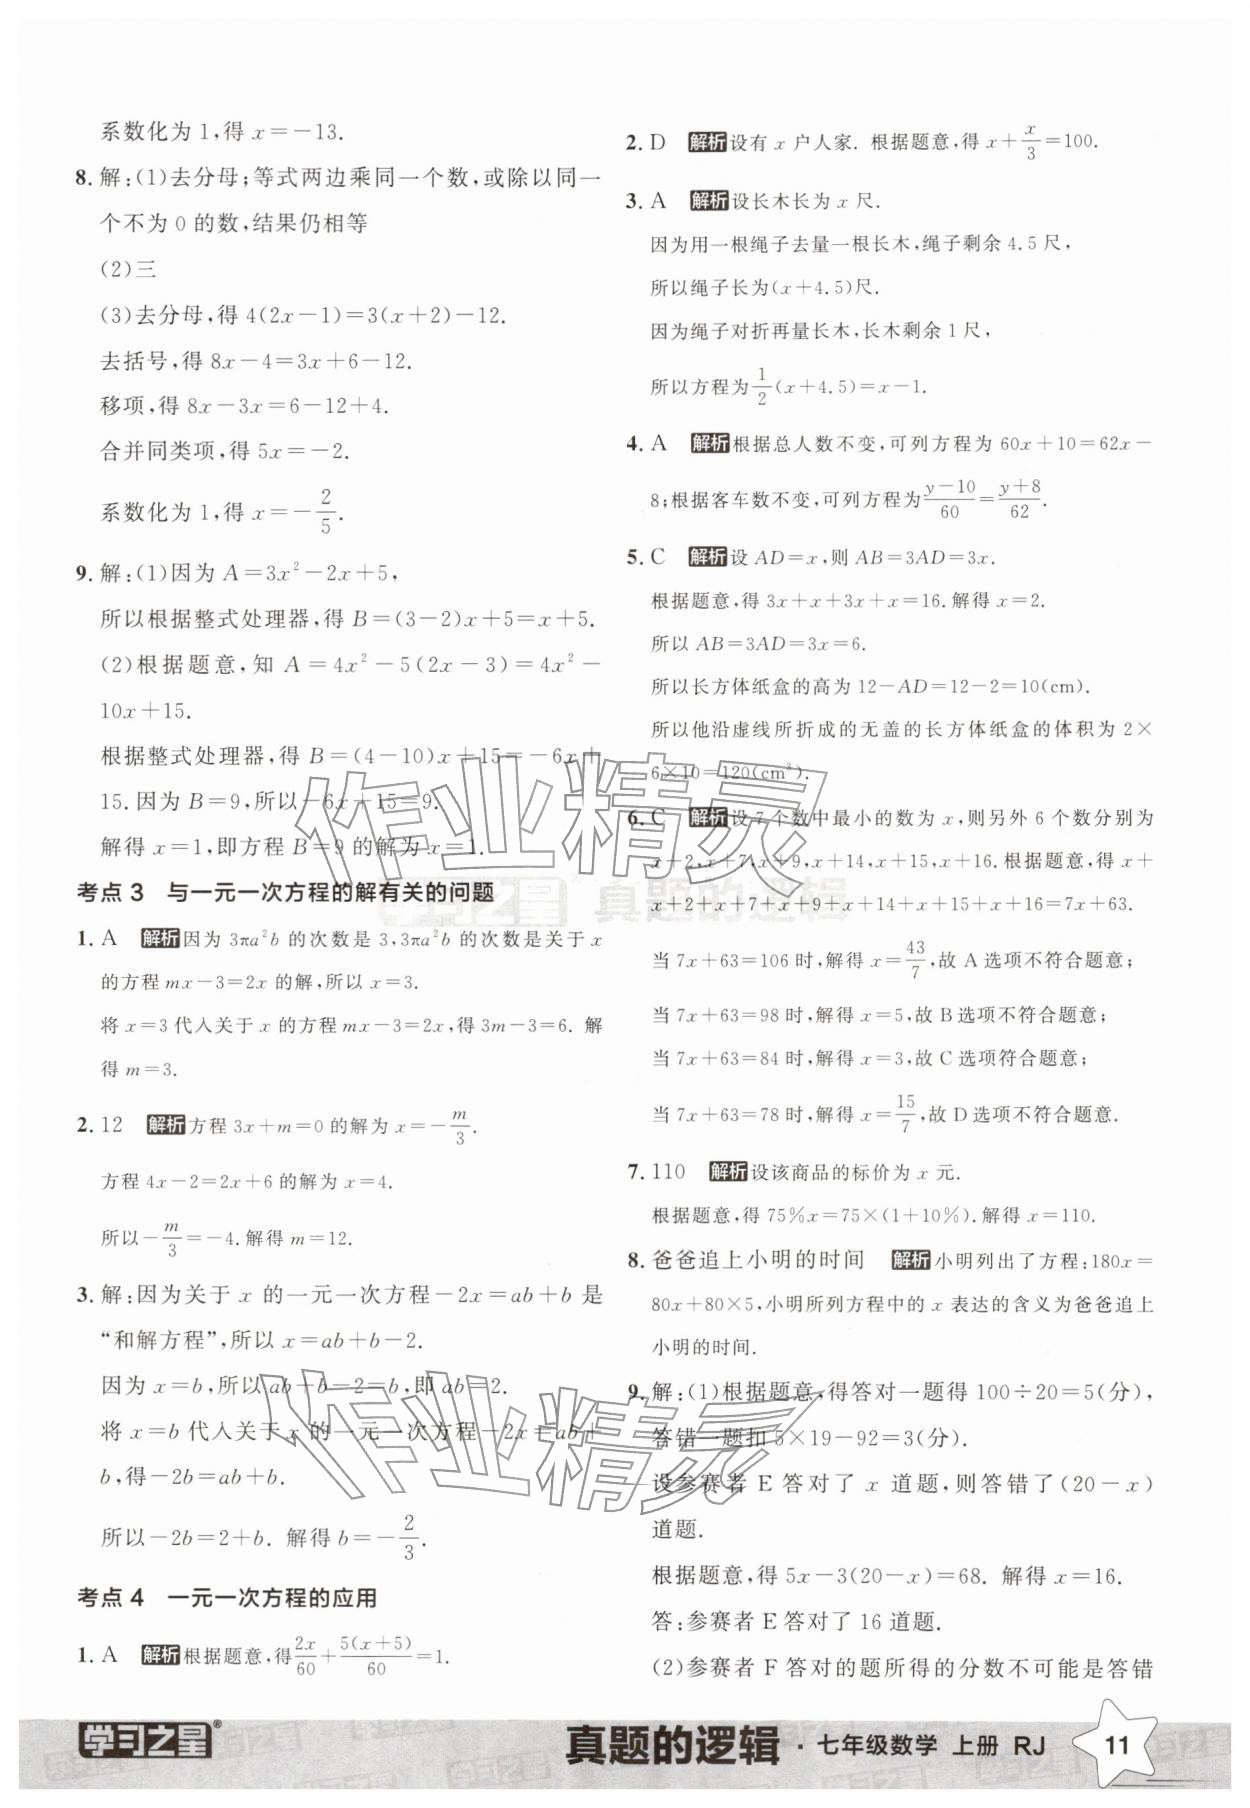 系数化为1,得x=-13.
8. 解:(1)去分母;等式两边乘同一个数,或除以同一
个不为0的数,结果仍相等
(2)三
(3)去分母,得4(2x-1)=3(x+2)-12.
去括号,得8x-4=3x+6-12.
移项,得8x-3x=6-12+4.
合并同类项,得5x=-2.
系数化为1,得x=-2/5.
9. 解:(1)因为A=3x²-2x+5,
所以根据整式处理器,得B=(3-2)x+5=x+5.
(2)根据题意,知A=4x²-5(2x-3)=4x²-
10x+15.
根据整式处理器,得B=(4-10)x+15=-6x+
15.因为B=9,所以-6x+15=9.
解得x=1,即方程B=9的解为x=1.
考点3 与一元一次方程的解有关的问题
1. A 解析 因为3πa²b的次数是3,3πa²b的次数是关于x
的方程mx-3=2x的解,所以x=3.
将x=3代入关于x的方程mx-3=2x,得3m-3=6. 解
得m=3.
2. 12 解析 方程3x+m=0的解为x=-m/3.
方程4x-2=2x+6的解为x=4.
所以-m/3=-4.解得m=12.
3. 解:因为关于x的一元一次方程-2x=ab+b是
“和解方程”,所以x=ab+b-2.
因为x=b,所以ab+b-2=b,即ab=2.
将x=b代入关于x的一元一次方程-2x=ab+
b,得-2b=ab+b.
所以-2b=2+b. 解得b=-2/3.
考点4 一元一次方程的应用
1. A 解析 根据题意,得2x/60+5(x+5)/60=1.
2. D 解析 设有x户人家. 根据题意,得x+x/3=100.
3. A 解析 设长木长为x尺.
因为用一根绳子去量一根长木,绳子剩余4.5尺,
所以绳子长为(x+4.5)尺.
因为绳子对折再量长木,长木剩余1尺,
所以方程为1/2(x+4.5)=x-1.
4. A 解析 根据总人数不变,可列方程为60x+10=62x-
8;根据客车数不变,可列方程为(y-10)/60=(y+8)/62.
5. C 解析 设AD=x,则AB=3AD=3x.
根据题意,得3x+x+3x+x=16.解得x=2.
所以AB=3AD=3x=6.
所以长方体纸盒的高为12-AD=12-2=10(cm).
所以他沿虚线所折成的无盖的长方体纸盒的体积为2×
6×10=120(cm³).
6. C 解析 设7个数中最小的数为x,则另外6个数分别为
x+2,x+7,x+9,x+14,x+15,x+16.根据题意,得x+
x+2+x+7+x+9+x+14+x+15+x+16=7x+63.
当7x+63=106时,解得x=43/7,故A选项不符合题意;
当7x+63=98时,解得x=5,故B选项不符合题意;
当7x+63=84时,解得x=3,故C选项符合题意;
当7x+63=78时,解得x=15/7,故D选项不符合题意.
7. 110 解析 设该商品的标价为x元.
根据题意,得75%x=75×(1+10%).解得x=110.
8. 爸爸追上小明的时间 解析 小明列出了方程:180x=
80x+80×5,小明所列方程中的x表达的含义为爸爸追上
小明的时间.
9. 解:(1)根据题意,得答对一题得100÷20=5(分),
答错一题扣5×19-92=3(分).
设参赛者E答对了x道题,则答错了(20-x)
道题.
根据题意,得5x-3(20-x)=68. 解得x=16.
答:参赛者E答对了16道题.
(2)参赛者F答对的题所得的分数不可能是答错
作业精灵
学习之星® 真题的逻辑
作业精灵
学习之星® 真题的逻辑·七年级数学 上册 RJ 11